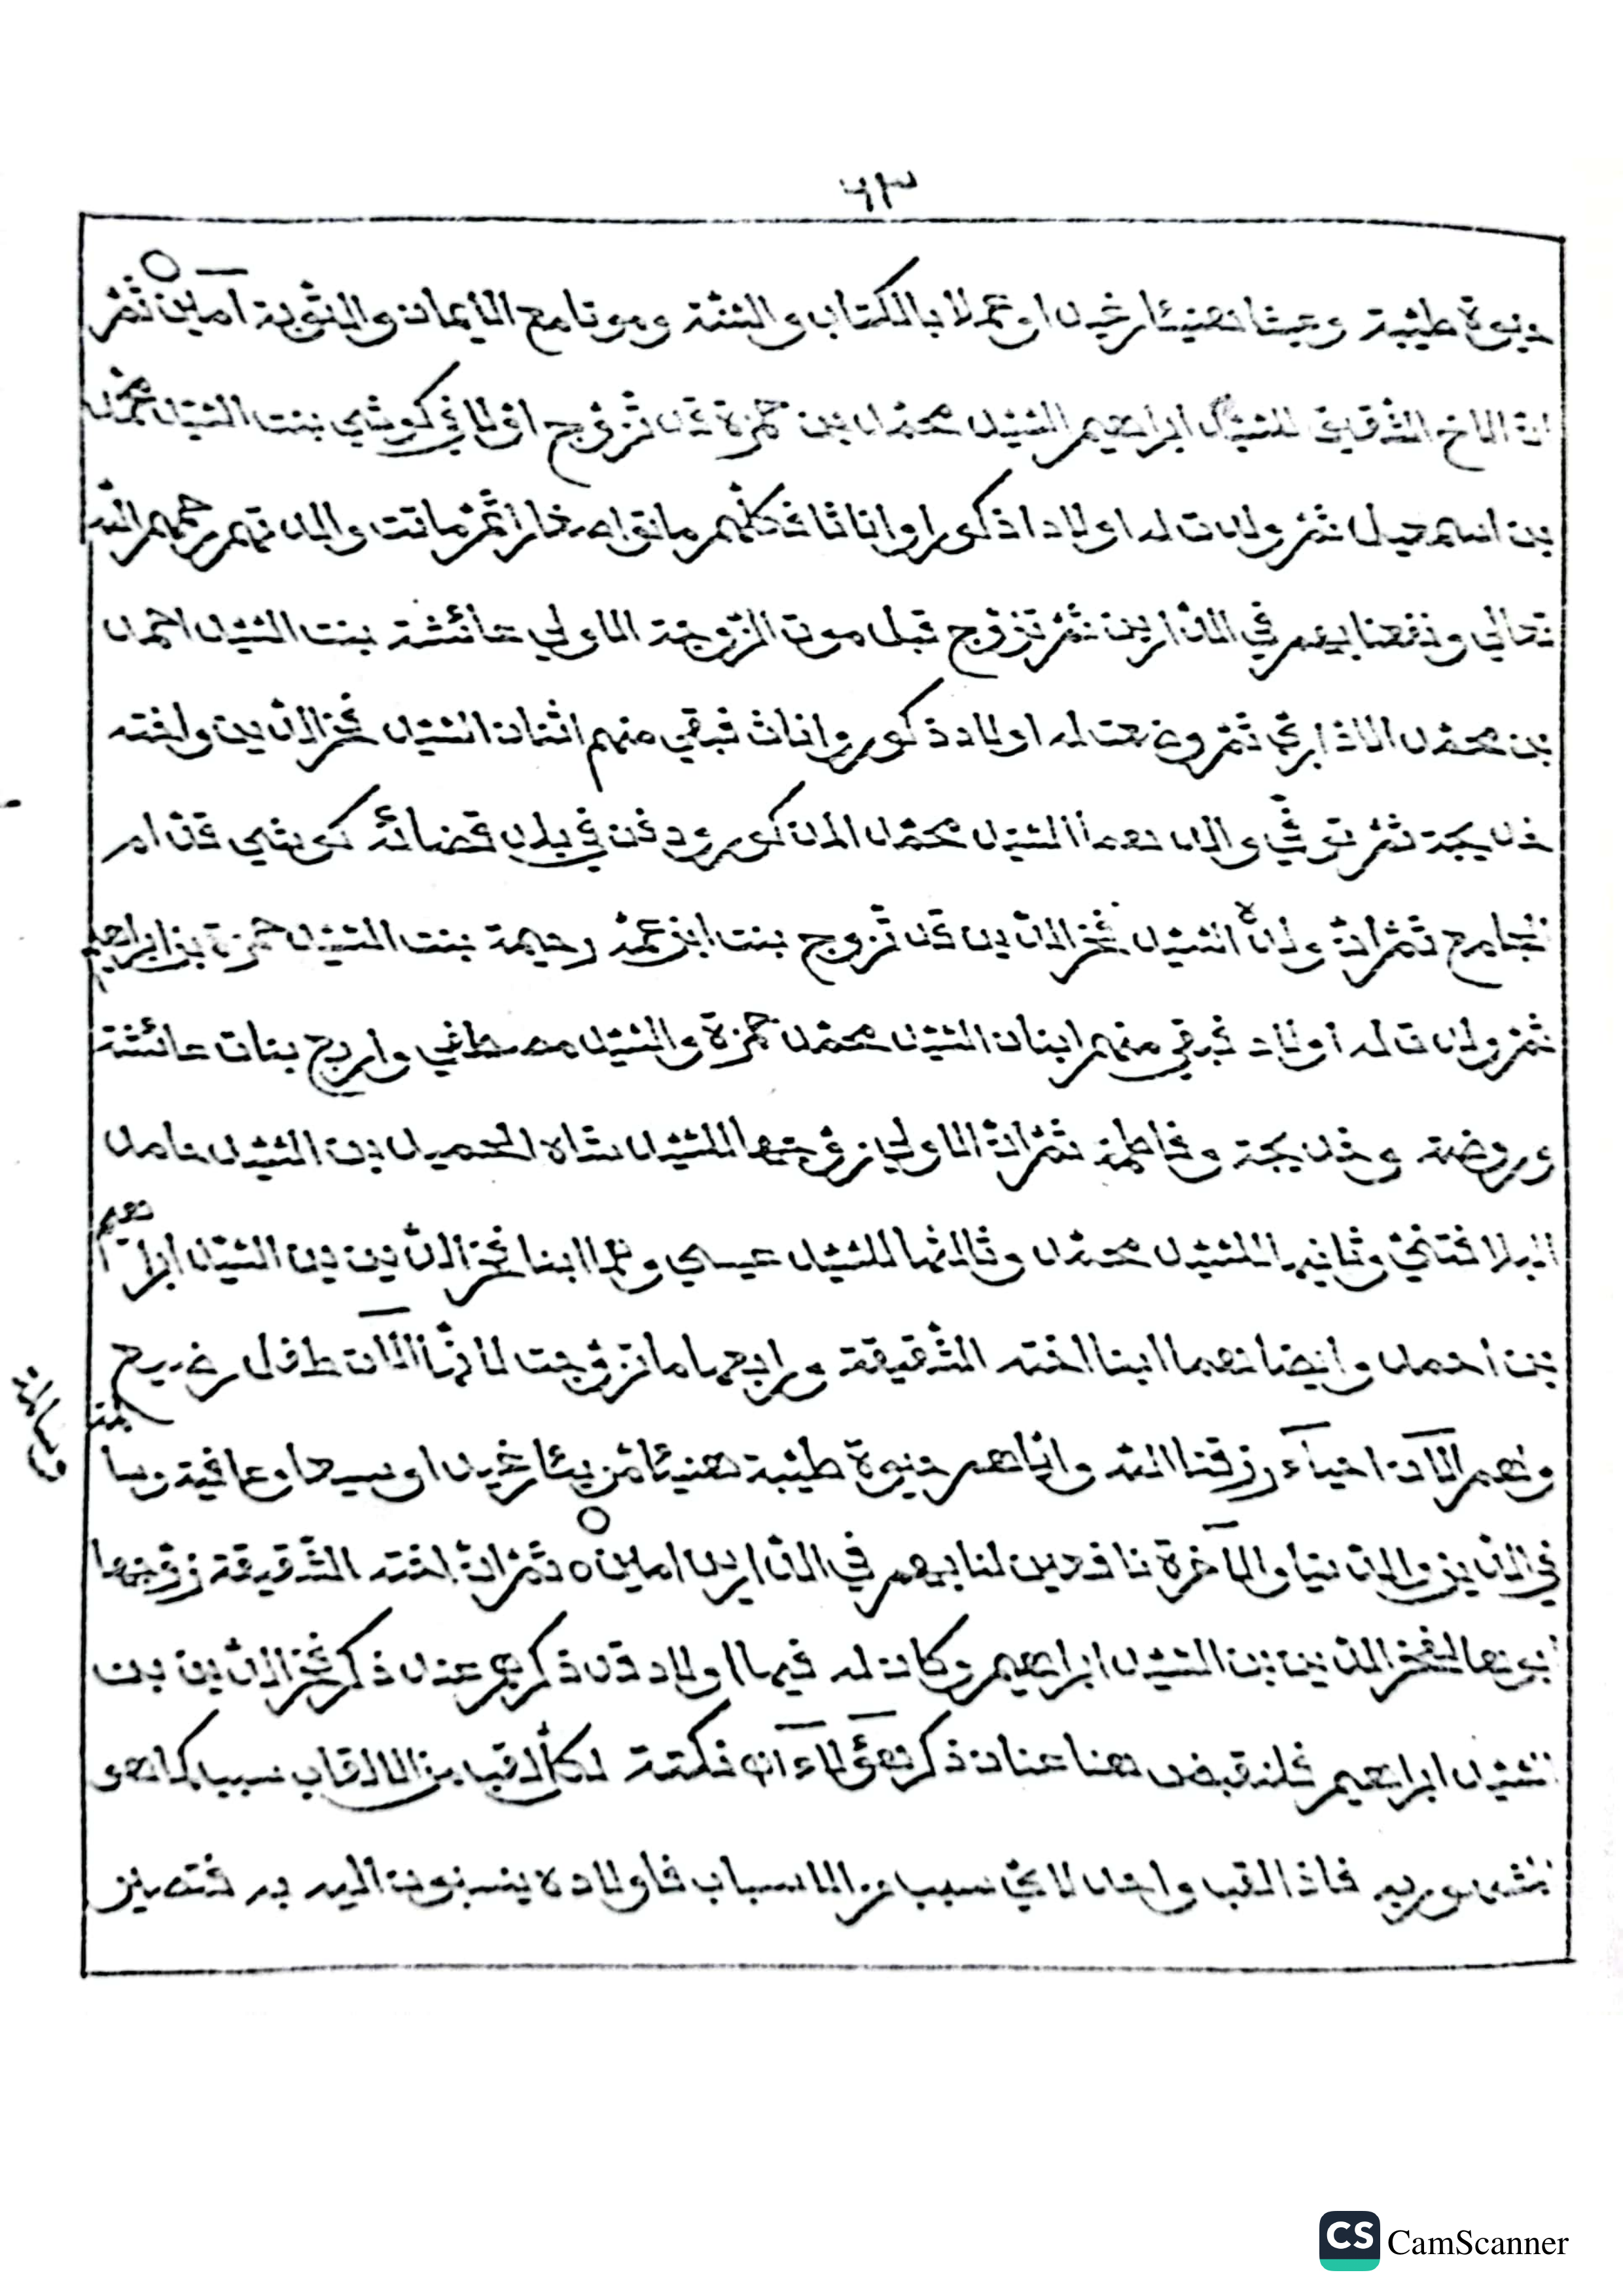 ٦٣
حيوة طيبة وعيشا هنيئا رغيدا وعملا بالكتاب والسنة وموتا مع الايمان والتوبة آمين ثم
ان الاخ الشقيق للسيد ابراهيم السيد محمد بن حمزة قد تزوج اولا في كوشي بنت السيد محمد
بن اسمعيل ثم ولدت له اولادا ذكورا واناثا فكلهم ماتوا صغارا ثم ماتت والدتهم رحمهم الله
تعالي ونفعنا بهم في الدارين ثم تزوج قبل موت الزوجة الاولي عائشة بنت السيد احمد
بن محمد ثم وضعت له اولاد ذكور واناث فبقي منهم اثنان السيد فخر الدين واخته
خديجة ثم توفي والدهما السيد محمد المذكور ودفن في بلد قضائه كوشي قدام
الجامع ثم ان ولده السيد فخر الدين قد تزوج بنت ابن عمه رحيمة بنت السيد حمزة بن ابراهيم
ثم ولدت له اولاد فبقي منهم ابنان السيد محمد حمزة والسيد مصطفي واربع بنات عائشة
وروضة وخديجة وفاطمة ثم ان الاولي زوجتها للسيد شاه الحميد بن السيد حامد
وثانيها للسيد محمد وثالثها للسيد عيسي وهما ابنا فخر الدين بن السيد ابراهيم
بن احمد وايضا هما ابنا اخته الشقيقة ورابعها ما تزوجت لانها الآن طفل رضيع
وهم الآن احياء رزقنا الله واياهم حيوة طيبة هنيئا مريئا رغيدا وسيعا وعافية وسلامة
في الدين والدنيا والآخرة نافعين لنا بهم في الدارين امين ثم ان اخته الشقيقة زوجها
ابوها لفخر الدين بن السيد ابراهيم وكان له فيها اولاد قد ذكرهم عند ذكر فخر الدين بن
السيد ابراهيم فلنقبض هنا عنان ذكر هؤلاء نكتة لكل لقب من الالقاب سبب كما هو
مشهور به فاذا لقب واحد لاي سبب من الاسباب فاولاده ينسبون اليه به فتصير